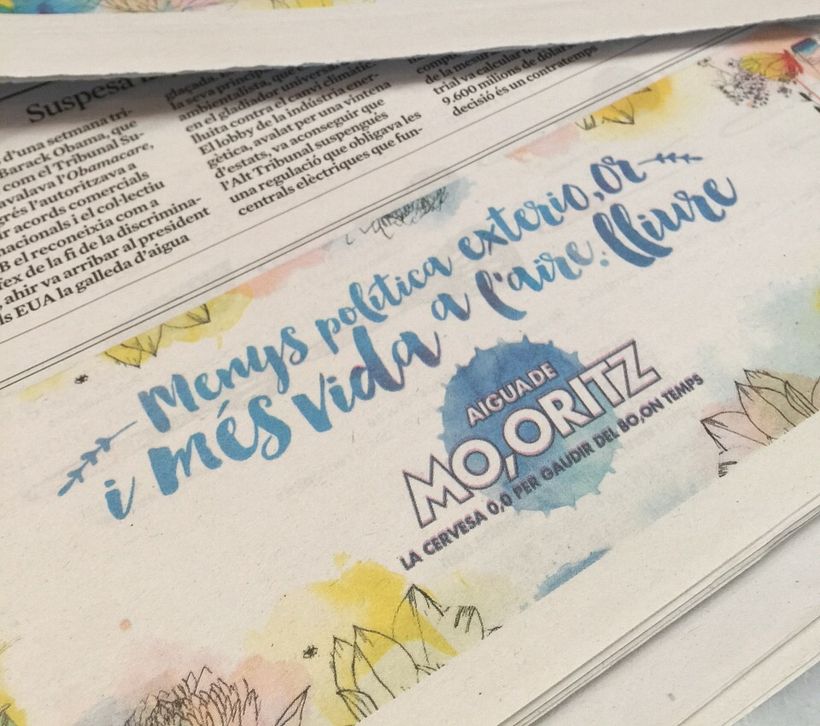 Suspesa
d'una setmana tri-
Barack Obama, que
com el Tribunal Su-
avalava l'Obamacare,
grés l'autoritzava a
ir acords comercials
nacionals i el col·lectiu
B el reconeixia com a
fex de la fi de la discrimina-
, ahir va arribar al president
ls EUA la galleda d'aigua
glaçada.
la seva princip
ambientalista, que
en el gladiador univers
lluita contra el canvi climàtic.
El lobby de la indústria ener-
gètica, avalat per una vintena
d'estats, va aconseguir que
l'Alt Tribunal suspengués
una regulació que obligava les
centrals elèctriques que fun-
comp
de la mesur
trial va calcular
9.600 milions de dòlar
decisió és un contratemps
Menys política exterio,or
i més vida a l'aire.lliure
AIGUA DE
MO,ORITZ
LA CERVESA 0,0 PER GAUDIR DEL BO,ON TEMPS